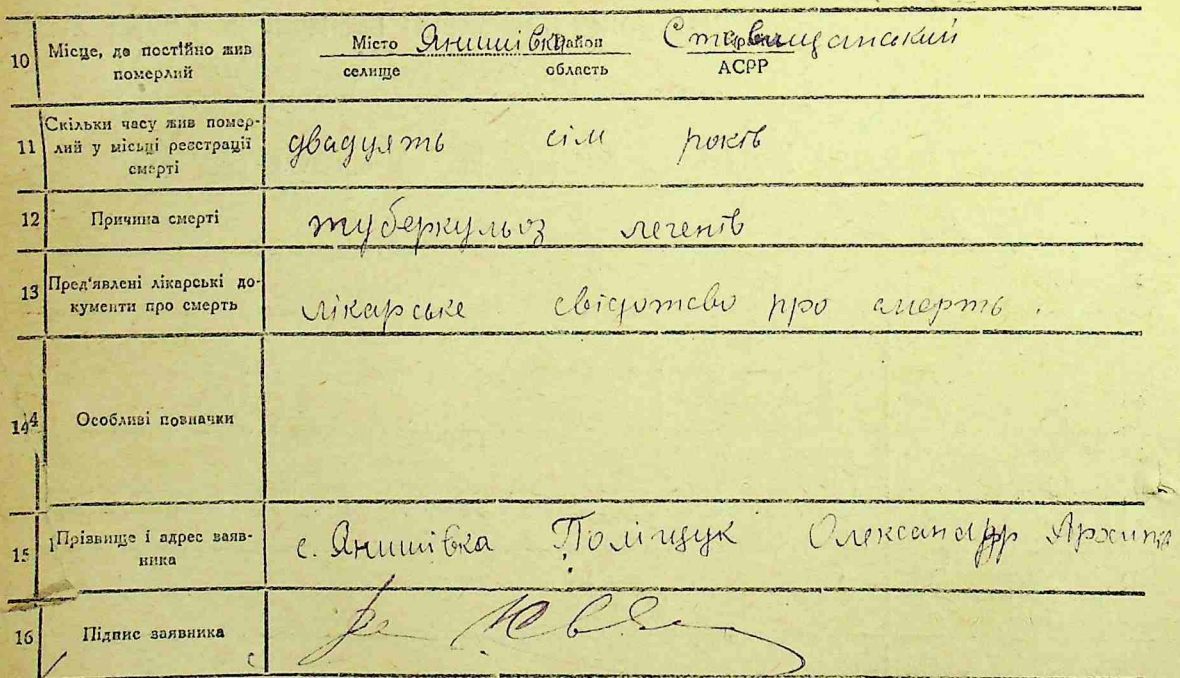 10 Місце, де постійно жив Місто Янишівка Район Ставищанський Країна
померлий селище область АСРР
Скільки часу жив помер-
11 лий у місьці реєстрації двадцять сім років
смерті
12 Причина смерті туберкульоз легенів
13 Пред'явлені лікарські до-
кументи про смерть лікарське свідотство про смерть.
14 Особливі позначки
15 Прізвище і адрес заяв- с. Янишівка Поліщук Олександр Архип
ника
16 Підпис заявника